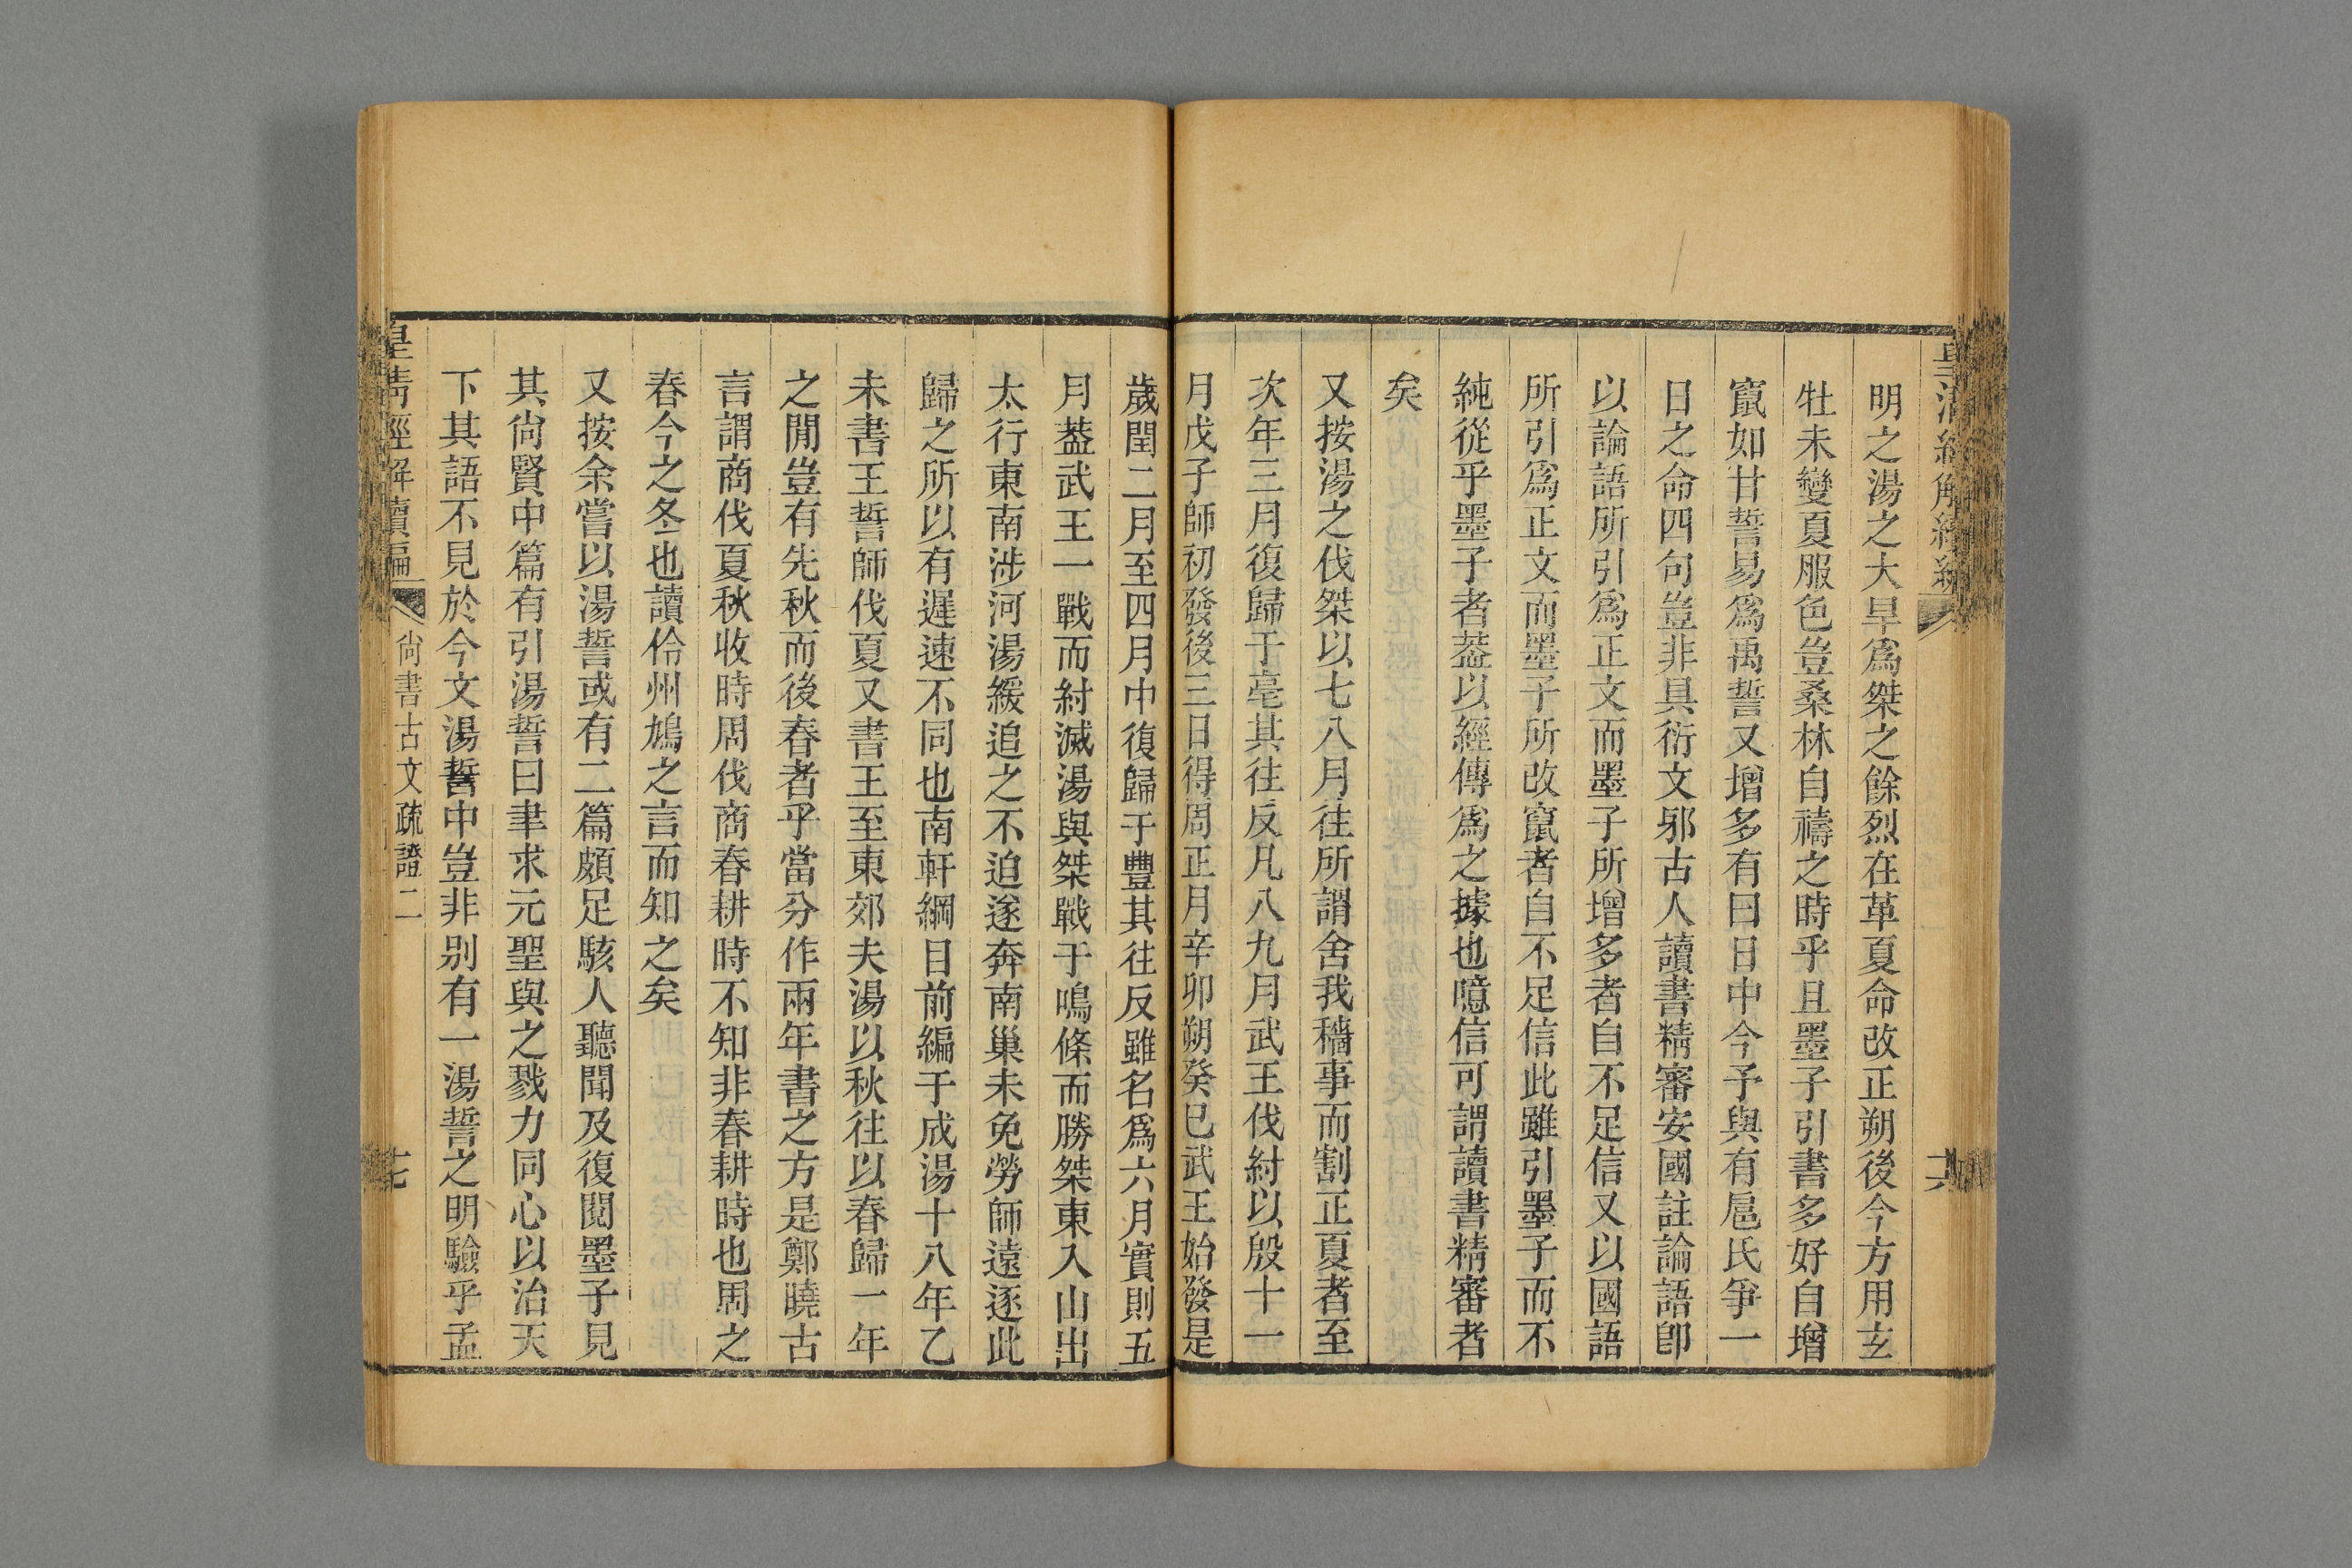 明之湯之大旱爲桀之餘烈在革夏命改正朔後今方用玄
牡未變夏服色豈桑林自禱之時乎且墨子引書多好自增
竄如甘誓易爲禹誓又增多有曰日中今予與有扈氏爭一
日之命四句豈非具衍文邪古人讀書精審安國註論語卽
以論語所引爲正文而墨子所增多者自不足信又以國語
所引爲正文而墨子所改竄者自不足信此雖引墨子而不
純從乎墨子者葢以經傳爲之據也噫信可謂讀書精審者
矣
又按湯之伐桀以七八月往所謂舍我穡事而割正夏者至
次年三月復歸于亳其往反凡八九月武王伐紂以殷十一
月戊子師初發後三日得周正月辛卯朔癸巳武王始發是
歲閏二月至四月中復歸于豐其往反雖名爲六月實則五
月葢武王一戰而紂滅湯與桀戰于鳴條而勝桀東入山出
太行東南涉河湯緩追之不迫遂奔南巢未免勞師遠逐此
歸之所以有遲速不同也南軒綱目前編于成湯十八年乙
未書王誓師伐夏又書王至東郊夫湯以秋往以春歸一年
之閒豈有先秋而後春者乎當分作兩年書之方是鄭曉古
言謂商伐夏秋收時周伐商春耕時不知非春耕時也周之
春今之冬也讀伶州鳩之言而知之矣
又按余嘗以湯誓或有二篇頗足駭人聽聞及復閱墨子見
其尙賢中篇有引湯誓曰聿求元聖與之戮力同心以治天
下其語不見於今文湯誓中豈非別有一湯誓之明驗乎孟
皇淸經解續編
尙書古文疏證二